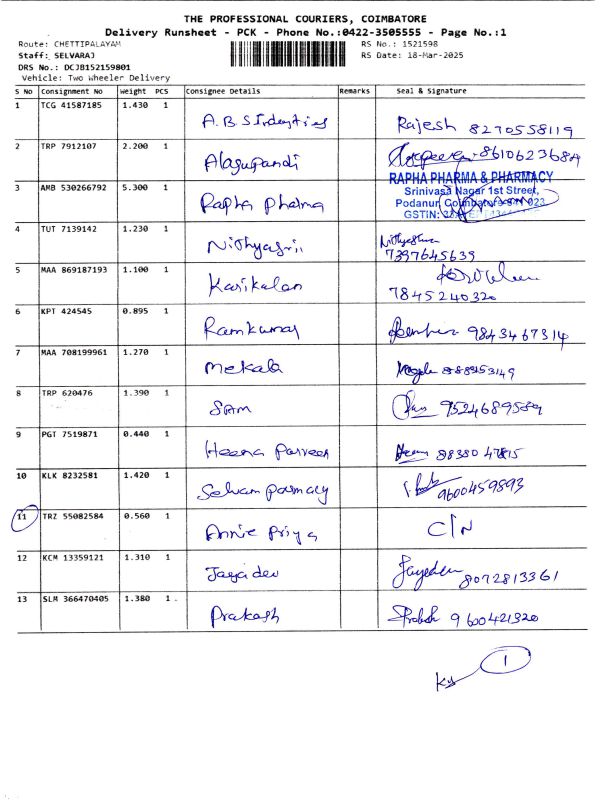 THE PROFESSIONAL COURIERS, COIMBATORE
Delivery Runsheet - PCK - Phone No.:0422-3505555 - Page No.:1
Route: CHETTIPALAYAM RS No.: 1521598
Staff: SELVARAJ RS Date: 18-Mar-2025
DRS No.: DCJB152159801
Vehicle: Two Wheeler Delivery
S No Consignment No Weight PCS Consignee Details Remarks Seal & Signature
1 TCG 41587185 1.430 1 A.B.S Industries Rajesh 8270558119
2 TRP 7912107 2.200 1 Alagupandi 8610623684
RAPHA PHARMA & PHARMACY
3 AMB 530266792 5.300 1 Rapha Pharma Srinivasa Nagar 1st Street,
Podanur, Coimbatore-641 023
GSTIN: 33
4 TUT 7139142 1.230 1 Nithyasrii
7397645639
5 MAA 869187193 1.100 1 Karikalan
7845240320
6 KPT 424545 0.895 1 Ramkumar 9843467314
7 MAA 708199961 1.270 1 Mekala
8 TRP 620476 1.390 1 SAM 9524689589
9 PGT 7519871 0.440 1 Heena Parveen 88380 47815
10 KLK 8232581 1.420 1 Selvam parmacy 9600459893
11 TRZ 55082584 0.560 1 Annie Priya C/N
12 KCM 13359121 1.310 1 Jayadev Jayadev 8072813361
13 SLM 366470405 1.380 1 Prakash 9600421320
1